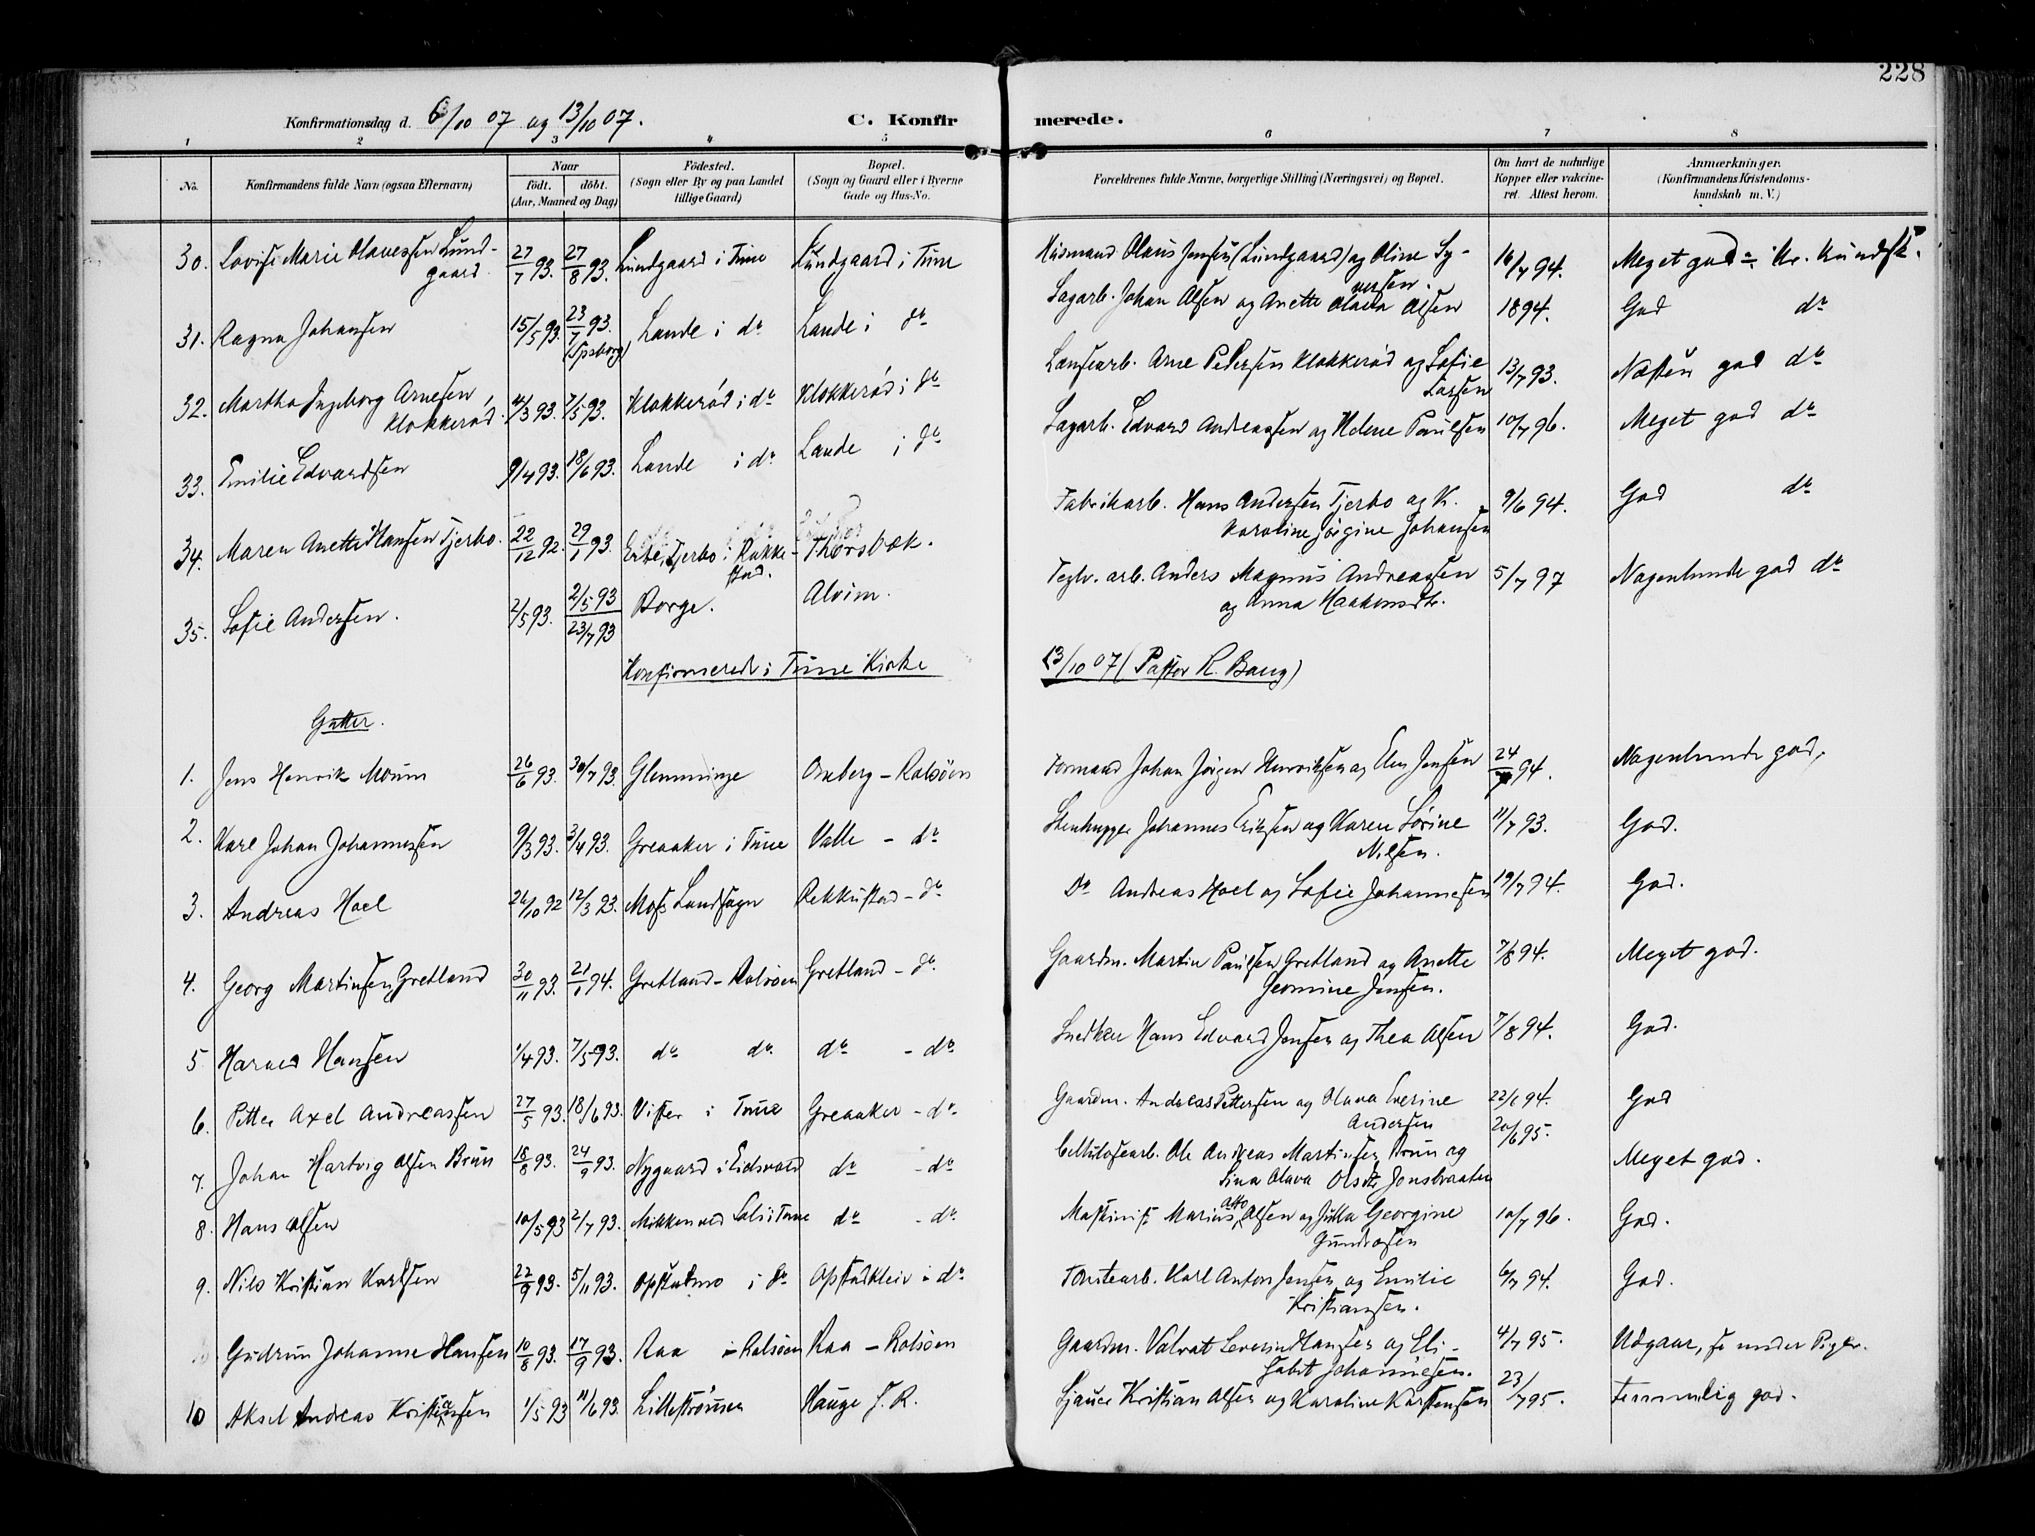 228
Konfirmationsdag d. 6/10 07 og 13/10 07. C. Konfirmerede.
1 2 3 4 5 6 7 8
No. Konfirmandens fulde Navn (ogsaa Efternavn) Naar födt. döbt. (Aar, Maaned og Dag) Födested. (Sogn eller By og paa Landet tillige Gaard) Bopæl. (Sogn og Gaard eller i Byerne Gade og Hus-No. Forældrenes fulde Navne, borgerlige Stilling (Næringsvei) og Bopæl. Om havt de naturlige Kopper eller vakcineret. Attest herom. Anmærkninger. (Konfirmandens Kristendomskundskab m. V.)
30. Lovise Marie Olavessen Lundgaard 27/7 93. 27/8 93. Lundgaard i Tune Lundgaard i Tune Husmand Olaus Jensen (Lundgaard) og Oline Syversen. 16/7 94. Meget god i Kr. Kundsk.
31. Ragna Johansen 15/5 93. 23/7 93. (Spsborg) Lande i do Lande i do Sagarb. Johan Olsen og Anette Olava Olsen 1894. God do
32. Martha Ingeborg Arnesen Klokkerød. 4/3 93. 7/5 93. Klokkerød i do Klokkerød i do Løusearb. Arne Pedersen Klokkerød og Sofie Larsen 13/7 93. Næsten god do
33. Emilie Edvardsen 9/4 93. 18/6 93. Lande i do Lande i do Sagarb. Edvard Andreassen og Helene Paulsen 10/7 96. Meget god do
34. Maren Anette Hansen Tjerbo. 22/12 92. 29/1 93. Tjerbo i Rakkestad. Thorsbæk. Fabrikarb. Hans Andersen Tjerbo og K. Karoline Jørgine Johansen 9/6 94. God do
35. Sofie Andersen. 2/5 93. 2/5 93 23/7 93 Borge. Alvim. Teglv. arb. Anders Magnus Andreassen og Anna Haakensdtr. 5/7 97 Nogenlunde god do
Konfirmerede i Tune Kirke 13/10 07 (Pastor R. Baug)
Gutter.
1. Jens Henrik Moum 26/6 93. 30/7 93. Glemminge Omberg - Rolsöen Formand Johan Jörgen Henriksen og Elen Jensen 24/7 94. Nogenlunde god.
2. Karl Johan Johannessen 9/3 93. 3/4 93. Greaaker i Tune Valle - do Stenhugger Johannes Eriksen og Karen Sørine Nilsen. 11/7 93. God.
3. Andreas Hoel 26/10 92 12/3 93. Moss Landsogn Rekkustad - do Do Andreas Hoel og Sofie Johannesen 19/7 94. God.
4. Georg Martinsen Gretland 30/11 93. 21/1 94. Gretland - Rolsøen Gretland - do. Gaardm. Martin Paulsen Gretland og Anette Geomine Jensen. 7/8 94. Meget god.
5 Harald Hansen 1/4 93. 7/5 93. do do do - do Snedker Hans Edvard Jensen og Thea Olsen 7/8 94. God.
6. Petter Axel Andreassen 27/5 93. 18/6 93. Vister i Tune Greaaker - do Gaardm. Andreas Pettersen og Olava Everine Andersen 22/6 94. God
7. Johan Hartvig Olsen Brun 18/8 93. 24/9 93. Nygaard i Eidsvold do - do Cellulosearb. Ole Andreas Martinsen Brun og Lina Olava Olsdtr Jonsbraaten 20/6 95. Meget god.
8. Hans Olsen 10/5 93 2/7 93. Mikkensred Solli i Tune do - do. Maskinist Marius Otto Olsen og Jutta Georgine Gundrosen 10/7 96. God.
9. Nils Kristian Karlsen 22/9 93. 5/11 93. Opstadmo i do Opstadkleiv - do Tomtearb. Karl Anton Jensen og Emilie Kristiansen. 6/7 94. God.
Gudrun Johanne Hansen 10/8 93. 17/9 93. Raa - Rolsøen Raa - Rolsöen Gaardm. Valvat Severin Hansen og Elisabet Johannesen. 4/7 95. Udgaar, se under Piger.
10 Aksel Andreas Kristiansen 1/5 93 11/6 93. Lillestrømmen Hauge i R. Sjauer Kristian Olsen og Karoline Karstensen 23/7 95. Temmelig god.